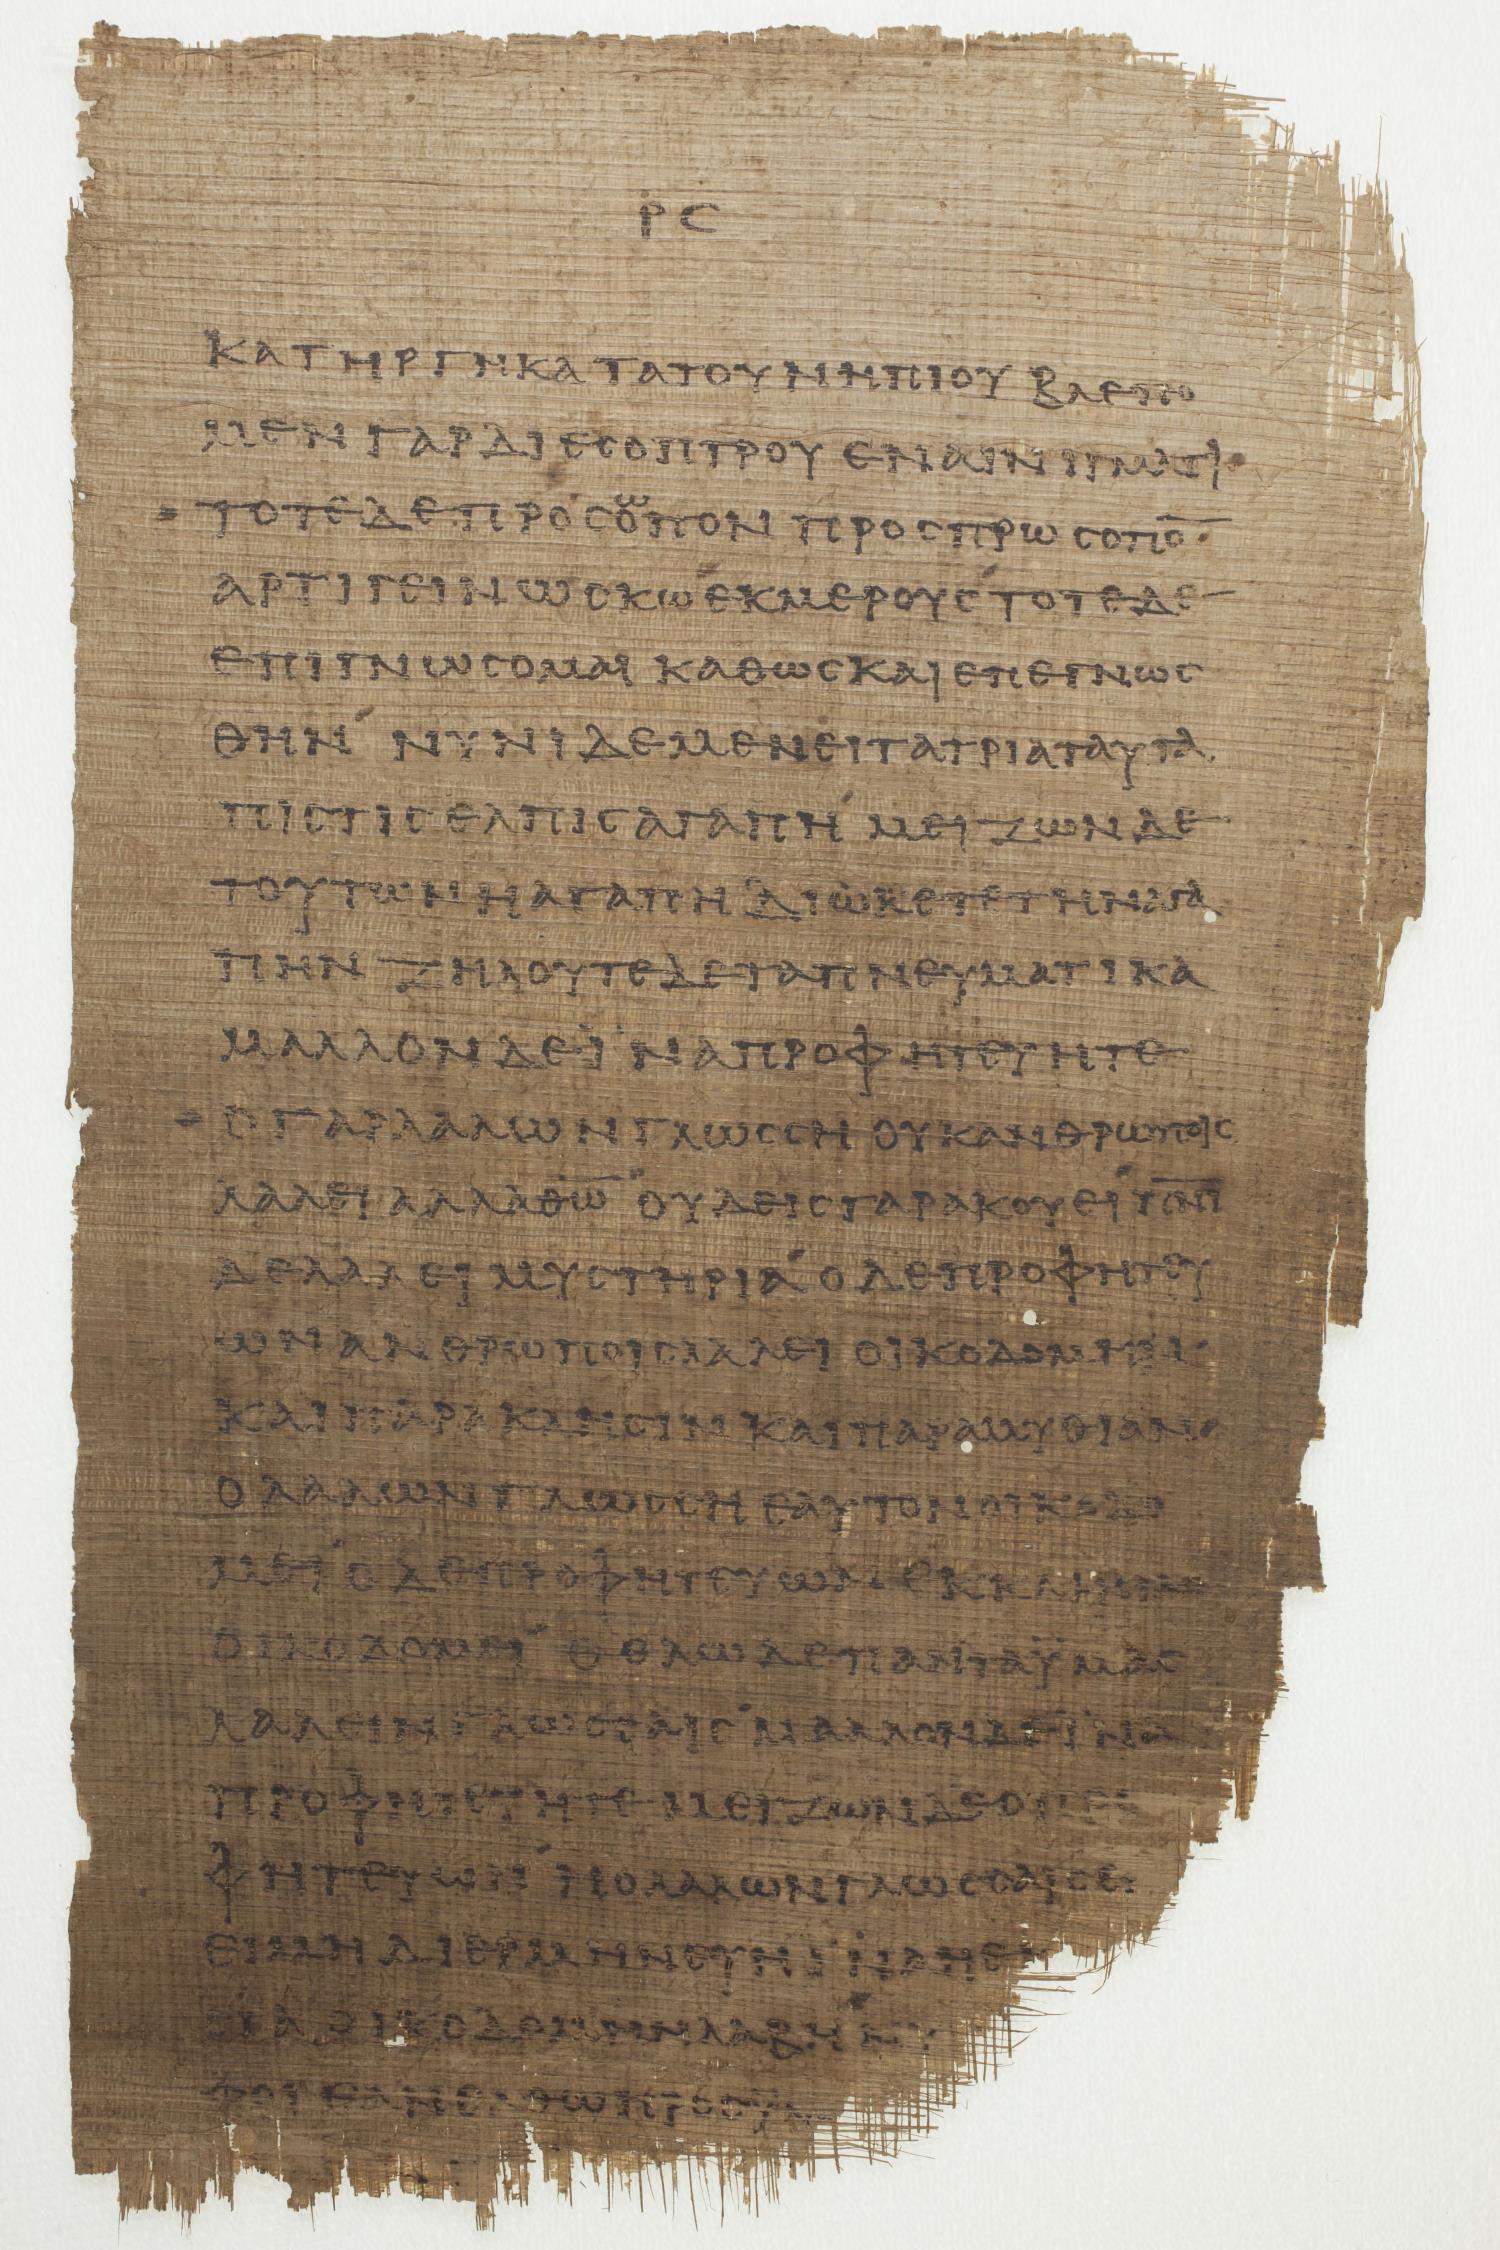 ΡϹ
ΚΑΤΗΡΓΗΚΑ ΤΑΤΟΥΝΗΠΙΟΥ ΒΛΕΠΟ
ΜΕΝ ΓΑΡ ΔΙ ΕϹΟΠΤΡΟΥ ΕΝ ΑΙΝΙΓΜΑΤΙ
ΤΟΤΕ ΔΕ ΠΡΟϹΟΠΟΝ ΠΡΟϹ ΠΡΩϹΟΠΟ̅
ΑΡΤΙ ΓΕΙΝΩϹΚΩ ΕΚ ΜΕΡΟΥϹ ΤΟΤΕ ΔΕ
ΕΠΙΓΝΩϹΟΜΑΙ ΚΑΘΩϹ ΚΑΙ ΕΠΕΓΝΩϹ
ΘΗΝ ΝΥΝΙ ΔΕ ΜΕΝΕΙ ΤΑ ΤΡΙΑ ΤΑΥΤΑ
ΠΙϹΤΙϹ ΕΛΠΙϹ ΑΓΑΠΗ ΜΕΙΖΩΝ ΔΕ
ΤΟΥΤΩΝ Η ΑΓΑΠΗ ΔΙΩΚΕΤΕ ΤΗΝ ΑΓΑ
ΠΗΝ ΖΗΛΟΥΤΕ ΔΕ ΤΑ ΠΝΕΥΜΑΤΙΚΑ
ΜΑΛΛΟΝ ΔΕ ΪΝΑ ΠΡΟΦΗΤΕΥΗΤΕ
Ο ΓΑΡ ΛΑΛΩΝ ΓΛΩϹϹΗ ΟΥΚ ΑΝΘΡΩΠΟΙϹ
ΛΑΛΕΙ ΑΛΛΑ Θ̅Ω̅ ΟΥΔΕΙϹ ΓΑΡ ΑΚΟΥΕΙ Π̅Ν̅Ι̅
ΔΕ ΛΑΛΕΙ ΜΥϹΤΗΡΙΑ Ο ΔΕ ΠΡΟΦΗΤΕΥ
ΩΝ ΑΝΘΡΩΠΟΙϹ ΛΑΛΕΙ ΟΙΚΟΔΟΜΗΝ
ΚΑΙ ΠΑΡΑΚΛΗϹΙΝ ΚΑΙ ΠΑΡΑΜΥΘΙΑΝ
Ο ΛΑΛΩΝ ΓΛΩϹϹΗ ΕΑΥΤΟΝ ΟΙΚΟΔΟ
ΜΕΙ Ο ΔΕ ΠΡΟΦΗΤΕΥΩΝ ΕΚΚΛΗϹΙΑΝ
ΟΙΚΟΔΟΜΕΙ ΘΕΛΩ ΔΕ ΠΑΝΤΑϹ ΥΜΑϹ
ΛΑΛΕΙΝ ΓΛΩϹϹΑΙϹ ΜΑΛΛΟΝ ΔΕ ΪΝΑ
ΠΡΟΦΗΤΕΥΗΤΕ ΜΕΙΖΩΝ ΔΕ Ο ΠΡΟ
ΦΗΤΕΥΩΝ Η Ο ΛΑΛΩΝ ΓΛΩϹϹΑΙϹ Ε
ΕΙ ΜΗ ΔΙΕΡΜΗΝΕΥΗ ΪΝΑ Η ΕΚ
ϹΙΑ ΟΙΚΟΔΟΜΗΝ ΛΑΒΗ ΝΥ
ΦΟΙ ΕΑΝ ΕΛΘΩ ΠΡΟϹ ΥΜ